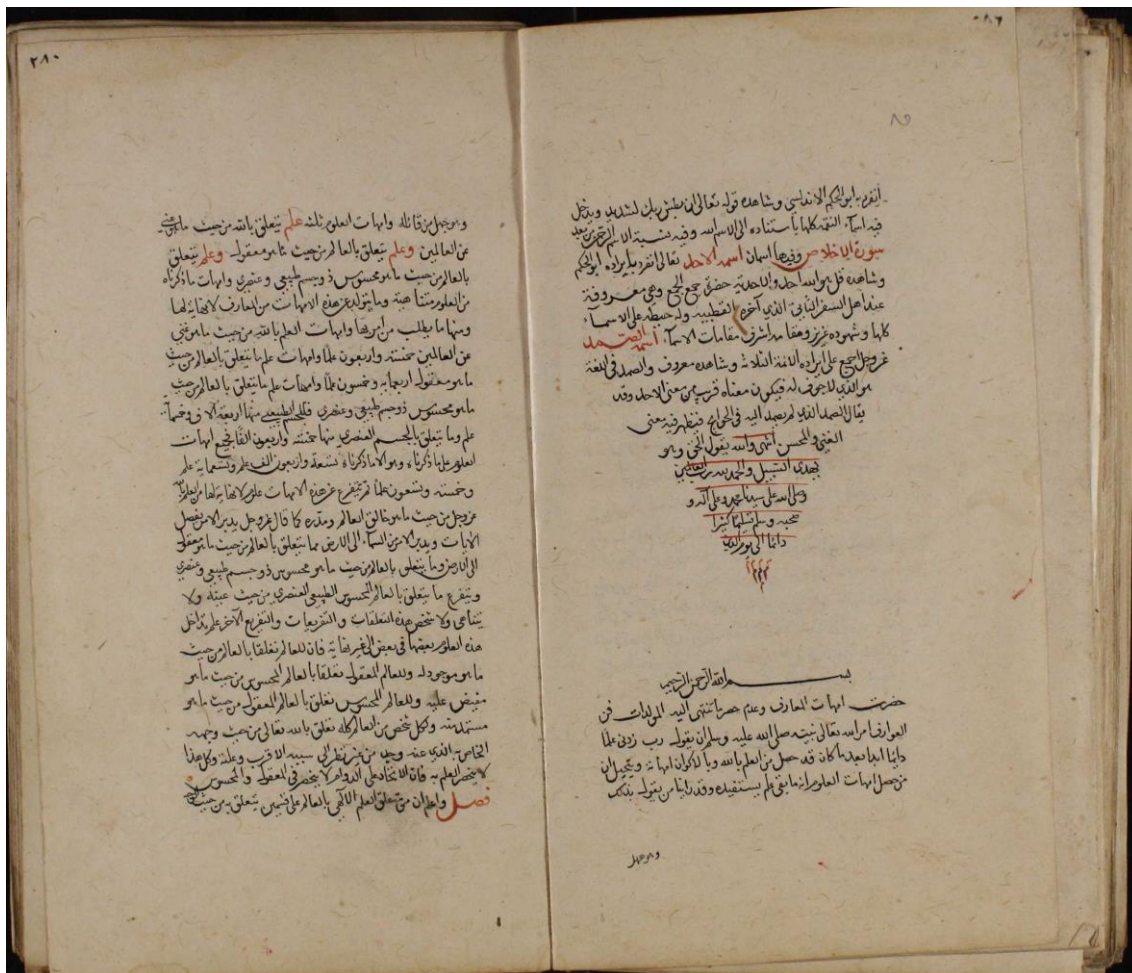 انفرد به ابو الحكم الاندلسي وشاهده قوله تعالى ان بطش ربك لشديد ويدخل
فيه اسماء النقمة كلها باستناده الى الاسم الله وفيه نسبة الاسم الرحمن
سورة الاخلاص وفيها اسمان اسمه الاحد تعالى انفرد بايراده ابو الحكم
وشاهده قل هو الله احد والاحدية حضرة جمع الجمع وهي معروفة
عند اهل السفر الثاني الذي آخره القطبية وله حيطة على الاسماء
كلها وشهوده عزيز اشرف مقامات الاسماء اسمه الصمد
عز وجل اجمع على ايراده الائمة الثلاثة وشاهده معروف والصمد في اللغة
هو الذي لا جوف له فيكون معناه قريب من معنى الاحد وقد
يقال الصمد الذي يصمد اليه في الحوايج فيظهر فيه معنى
الغني والمحسن انتهى والله يقول الحق وهو
يهدي السبيل والحمد لله رب العالمين
وصلى الله على سيدنا محمد وعلى آله و
صحبه وسلم تسليما كثيرا
دائما الى يوم الدين
بسم الله الرحمن الرحيم
حضرت امهات المعارف وعدم حصر ما تنتهي اليه المولدات فمن
العوارف امر الله تعالى نبيه صلى الله عليه وسلم ان يقول رب زدني علما
دائما ابدا بعد ما كان قد حصل من العلم بالله وبالاكوان امهاته ويتخيل ان
من حصل امهات العلوم انه ما بقي علم يستفيده وقد راينا من يقول بذلك
وهو جهل
٢٨٠
وهو جهل من قائله وامهات العلوم ثلثة علم يتعلق بالله من حيث ما هو غني
عن العالمين وعلم يتعلق بالعالم من حيث ما هو معقول وعلم يتعلق
بالعالم من حيث ما هو محسوس ذو جسم طبيعي وعنصري وامهات ما ذكرناه
من العلوم متناهية وما يتولد عن هذه الامهات من المعارف لا نهاية لها
ومنها ما يطلب من وامهات العلم بالله من حيث ما هو غني
عن العالمين خمسة واربعون علما وامهات علم ما يتعلق بالعالم من حيث
ما هو معقول اربعمايه وخمسون علما وامهات علم ما يتعلق بالعالم من حيث
ما هو محسوس ذو جسم طبيعي وعنصري فللجسم الطبيعي منها اربعة الاف وخمسمائة
علم وما يتعلق بالجسم العنصري منها خمسة واربعون الفا فجميع امهات
العلوم على ما ذكرناه وهو الاما ذكرناه تسعة واربعون الف علم وتسعماية علم
وخمسة وتسعون علما ثم يتفرع عن هذه الامهات علوم لا نهاية لها من العلم بالله
عز وجل من حيث ما هو خالق العالم ومدبره كما قال عز وجل يدبر الامر يفصل
الايات ويدبر الامر من السماء الى الارض مما يتعلق بالعالم من حيث ما هو معقول
الى الارض وما يتعلق بالعالم من حيث ما هو محسوس ذو جسم طبيعي وعنصري
ويتفرع ما يتعلق بالعالم المحسوس الطبيعي العنصري من حيث عينه ولا
يتناهى ولا شخص هذه التعلقات والتفريعات والتفريع الآخر علم تداخل
هذه العلوم بعضها في بعض الى غير نهاية فان للعالم تعلقا بالعالم من حيث
ما هو موجود له وللعالم المعقول تعلقا بالعالم المحسوس من حيث ما هو
مفيض عليه وللعالم المحسوس تعلق بالعالم المعقول من حيث ما هو
مستمد منه ولكل شخص من العالم كله تعلق بالله تعالى من حيث وجهه
الخاص به الذي عنه وجد من غير نظر الى سببه الاقرب وعلته وكل هذا
لا ينحصر العلم به فان الاتخاذ على الدوام لا ينحصر في المعقول والمحسوس
فصل واعلم ان متعلق العلم الالهي بالعالم على قسمين يتعلق به من حيث